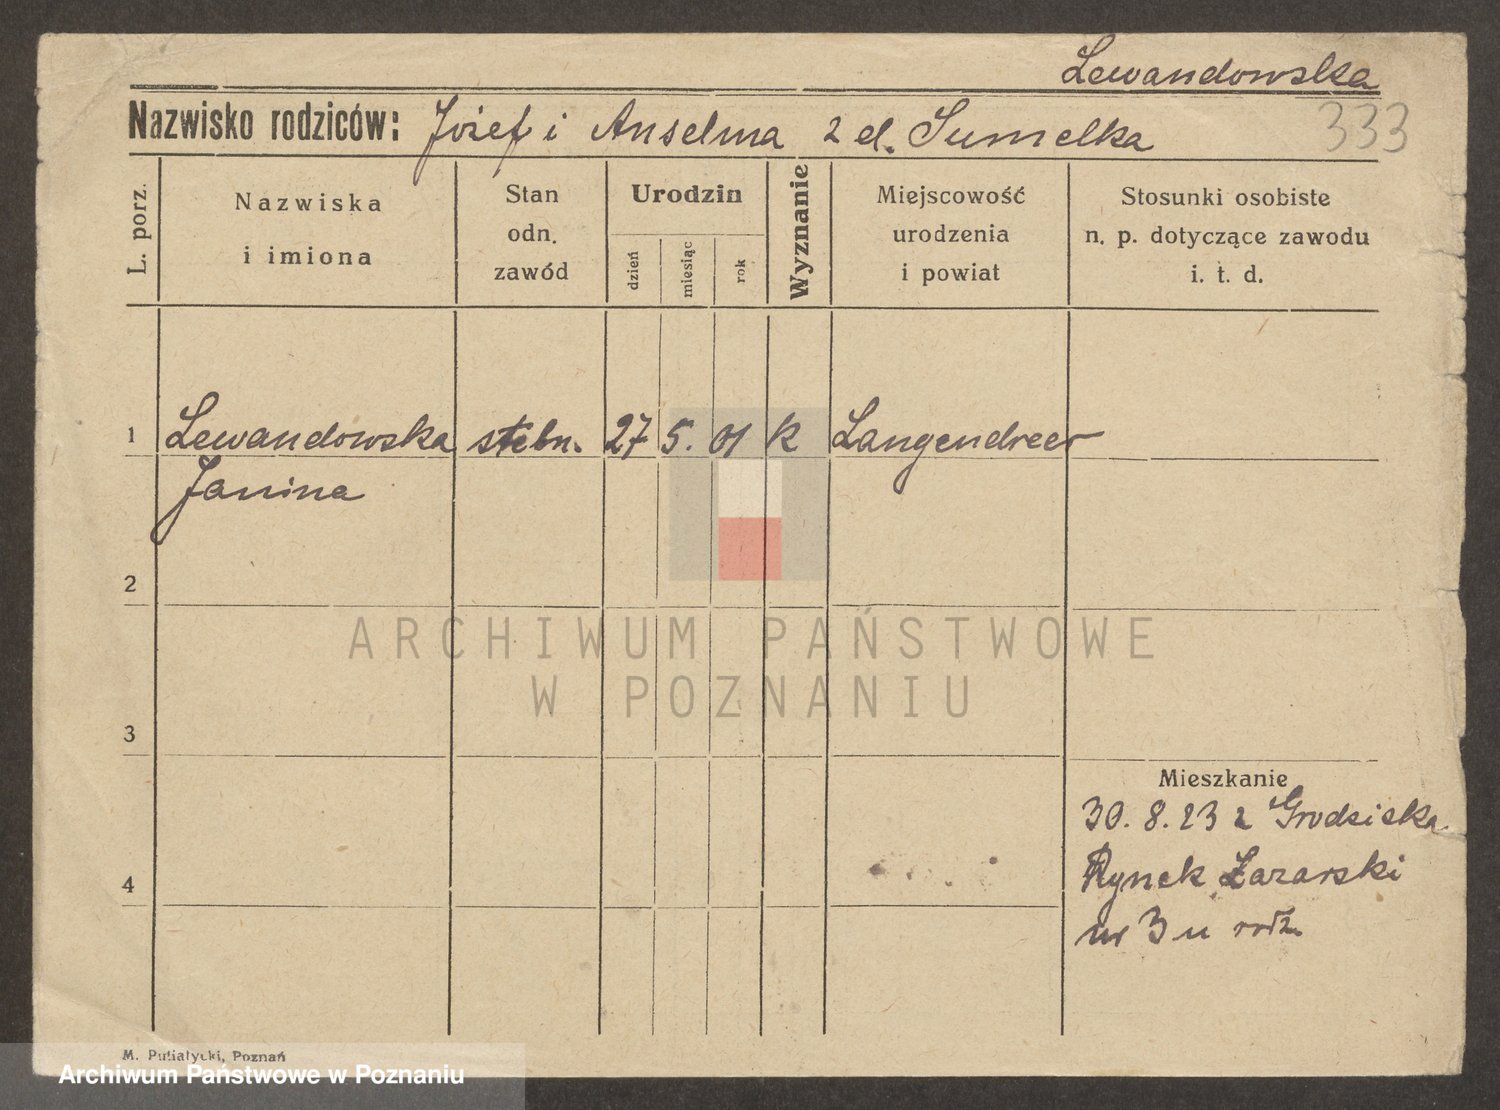 Lewandowska
Nazwisko rodziców: Józef i Anselma z d. Sumelka
333
L. porz.
Nazwiska
i imiona
Stan
odn.
zawód
Urodzin
dzień
miesiąc
rok
Wyznanie
Miejscowość
urodzenia
i powiat
Stosunki osobiste
n. p. dotyczące zawodu
i. t. d.
1 Lewandowska stebn. 27 5. 01 k Langendreer
Janina
2
ARCHIWUM PAŃSTWOWE
W POZNANIU
3
Mieszkanie
30. 8. 23 z Grodziska
4 Rynek Łazarski
nr 3 u rodz.
M. Putiatycki, Poznań
Archiwum Państwowe w Poznaniu